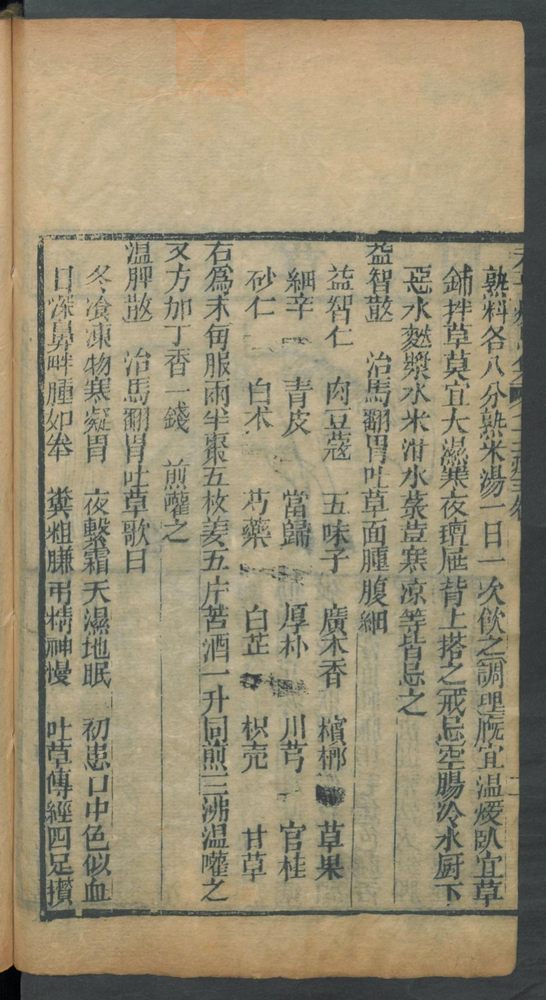 熟料各八分熟米湯一日一次飲之調理廐宜温煖臥宜草
鋪拌草莫宜大濕寒夜氊屜背上搭之戒忌空腸冷水厨下
惡水麵漿水米泔水蒸荳寒凉等皆忌之
益智散 治馬翻胃吐草面腫腹細
益智仁 肉豆蔻 五味子 廣木香 檳榔 草果
細辛 青皮 當歸 厚朴 川芎 官桂
砂仁 白术 芍藥 白芷 枳壳 甘草
右爲末每服兩半棗五枚姜五片苦酒一升同煎三沸温嚾之
又方加丁香一錢 煎嚾之
温脾散 治馬翻胃吐草歌曰
冬冷凍物寒凝胃 夜繫霜天濕地眠 初患口中色似血
日深鼻畔腫如拳 糞粗膁弔精神慢 吐草傳經四足攅